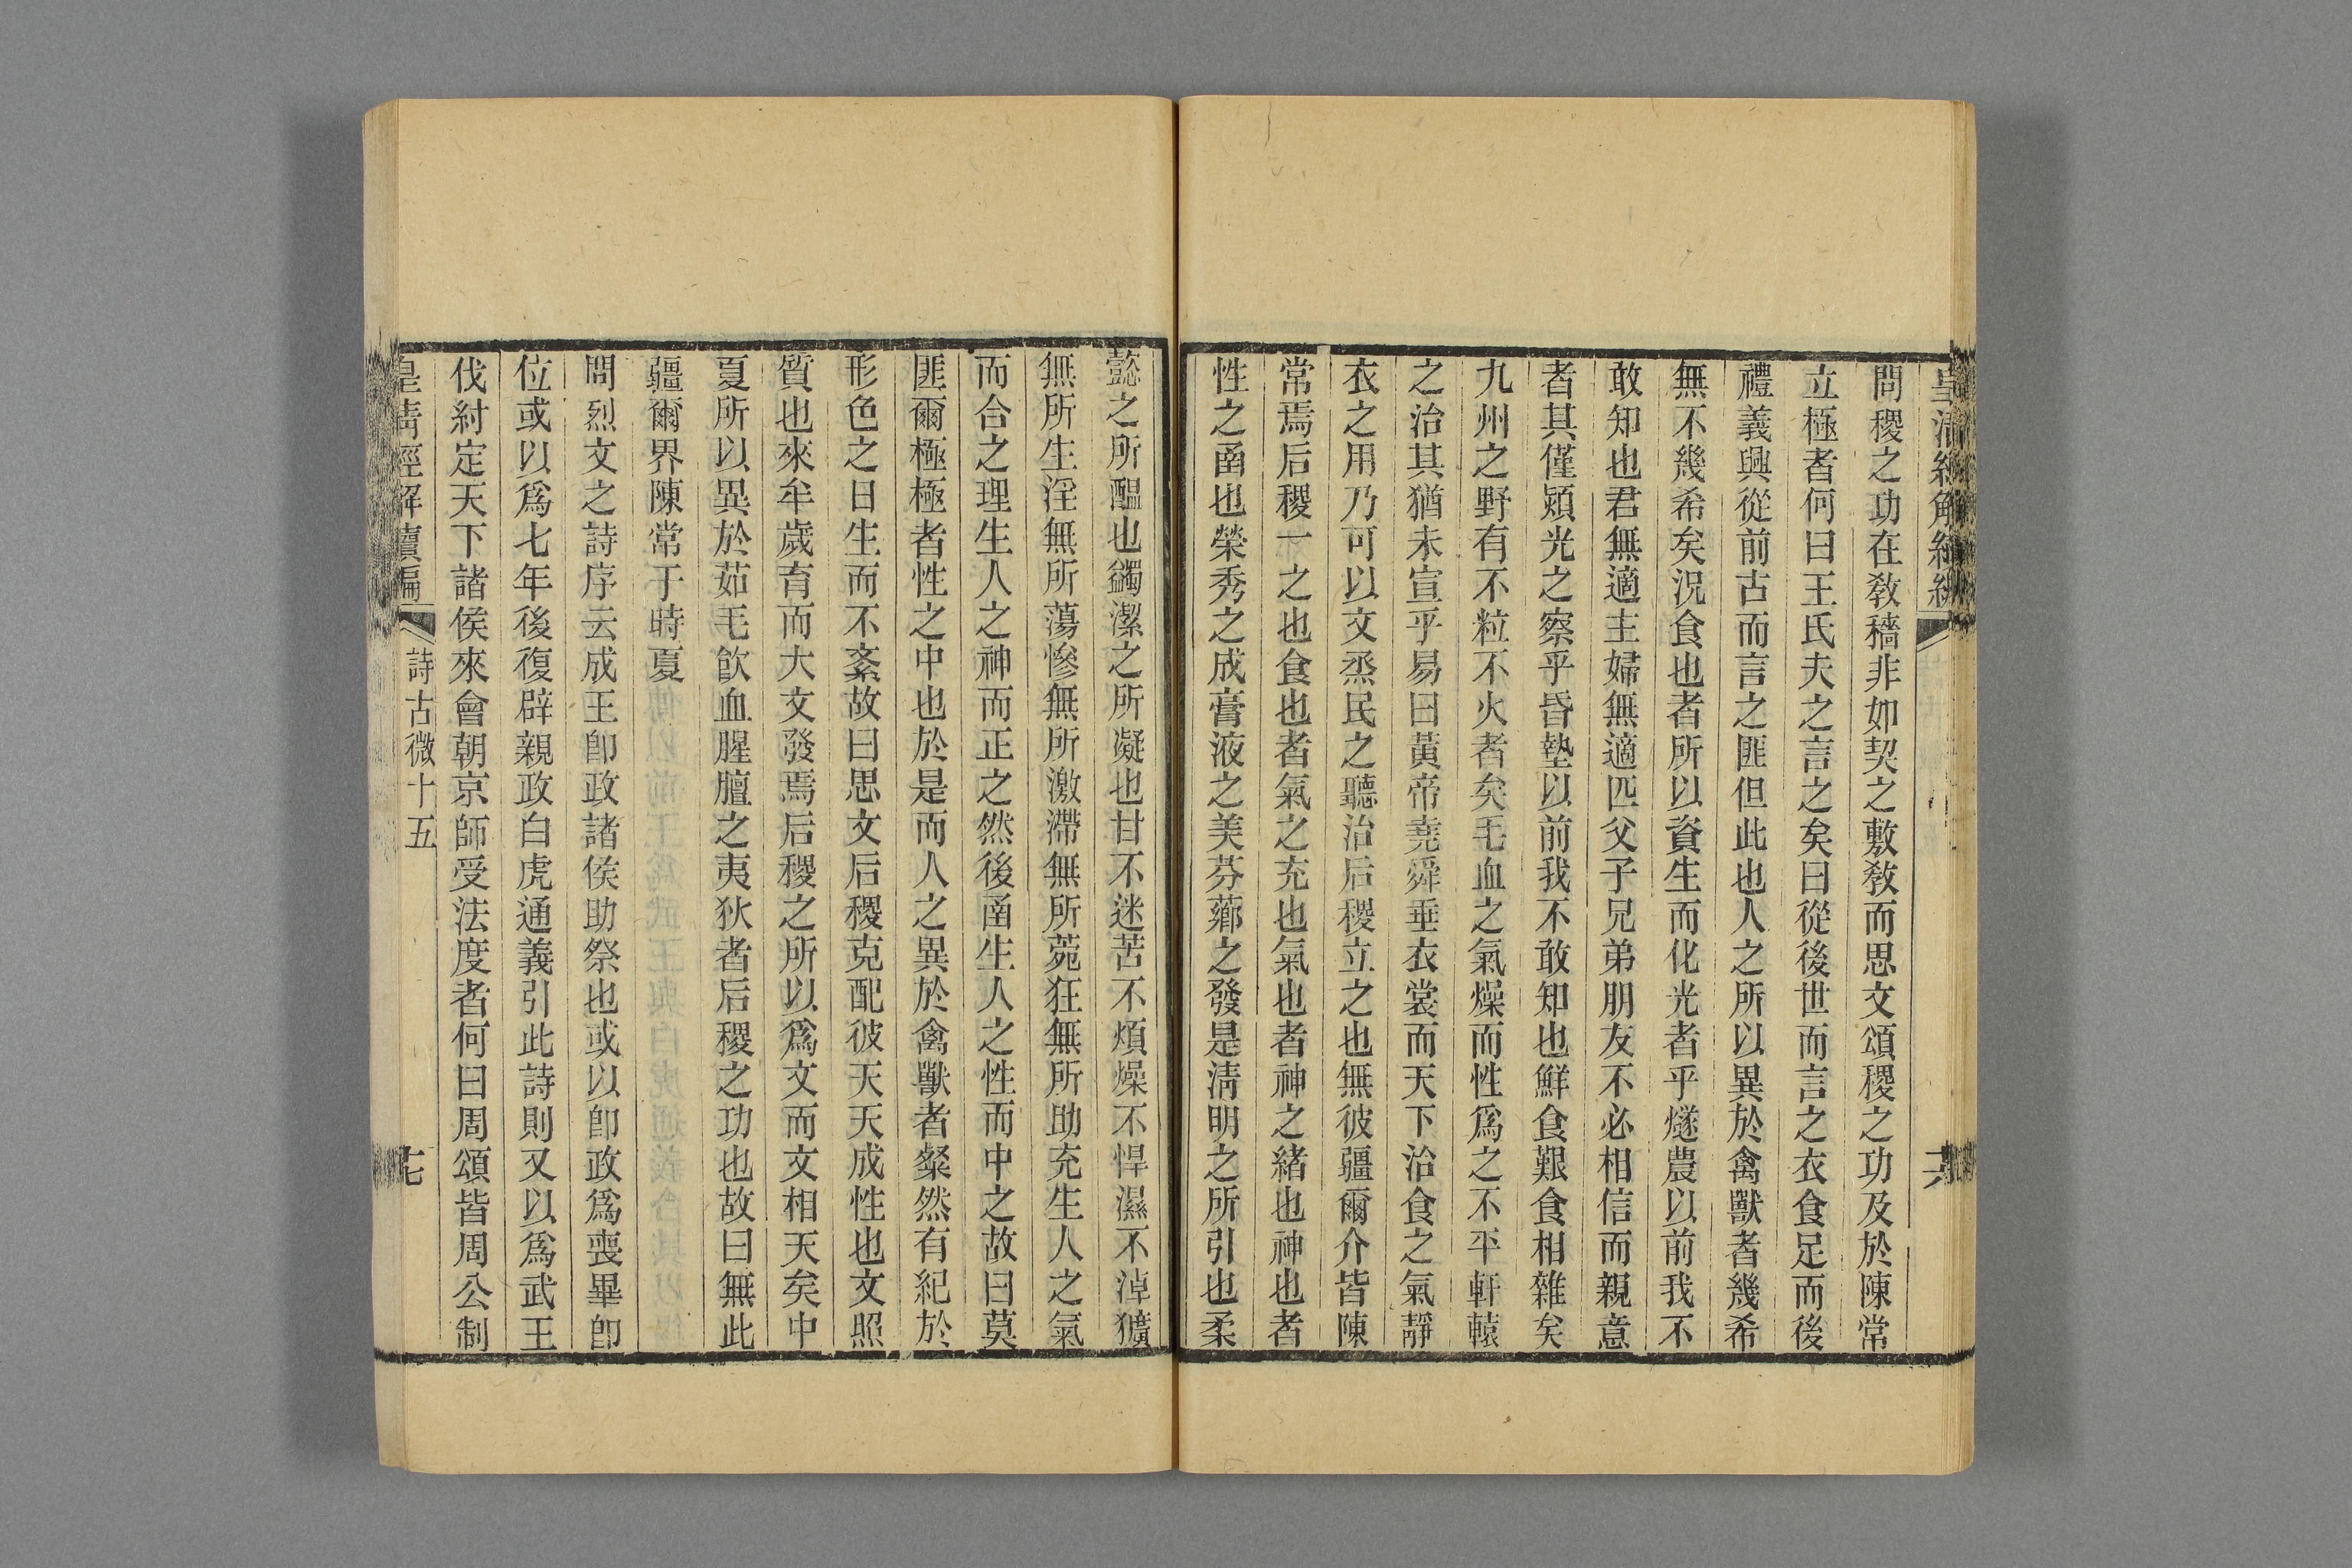 皇清經解續編
六
問稷之功在敎穡非如契之敷敎而思文頌稷之功及於陳常
立極者何曰王氏夫之言之矣曰從後世而言之衣食足而後
禮義興從前古而言之匪但此也人之所以異於禽獸者幾希
無不幾希矣況食也者所以資生而化光者乎燧農以前我不
敢知也君無適主婦無適匹父子兄弟朋友不必相信而親意
者其僅熲光之察乎昏墊以前我不敢知也鮮食艱食相雜矣
九州之野有不粒不火者矣毛血之氣燥而性爲之不平軒轅
之治其猶未宣乎易曰黃帝堯舜垂衣裳而天下治食之氣靜
衣之用乃可以文烝民之聽治后稷立之也無彼疆爾介皆陳
常焉后稷一之也食也者氣之充也氣也者神之緒也神也者
性之函也榮秀之成膏液之美芬薌之發是淸明之所引也柔
懿之所醞也蠲潔之所凝也甘不迷苦不煩燥不悍濕不淖獷
無所生淫無所蕩慘無所激滯無所菀狂無所助充生人之氣
而合之理生人之神而正之然後函生人之性而中之故曰莫
匪爾極極者性之中也於是而人之異於禽獸者粲然有紀於
形色之日生而不紊故曰思文后稷克配彼天天成性也文照
質也來牟歲育而大文發焉后稷之所以爲文而文相天矣中
夏所以異於茹毛飮血腥膻之夷狄者后稷之功也故曰無此
疆爾界陳常于時夏
問烈文之詩序云成王卽政諸侯助祭也或以卽政爲喪畢卽
位或以爲七年後復辟親政白虎通義引此詩則又以爲武王
伐紂定天下諸侯來會朝京師受法度者何曰周頌皆周公制
皇淸經解續編
詩古微十五
七